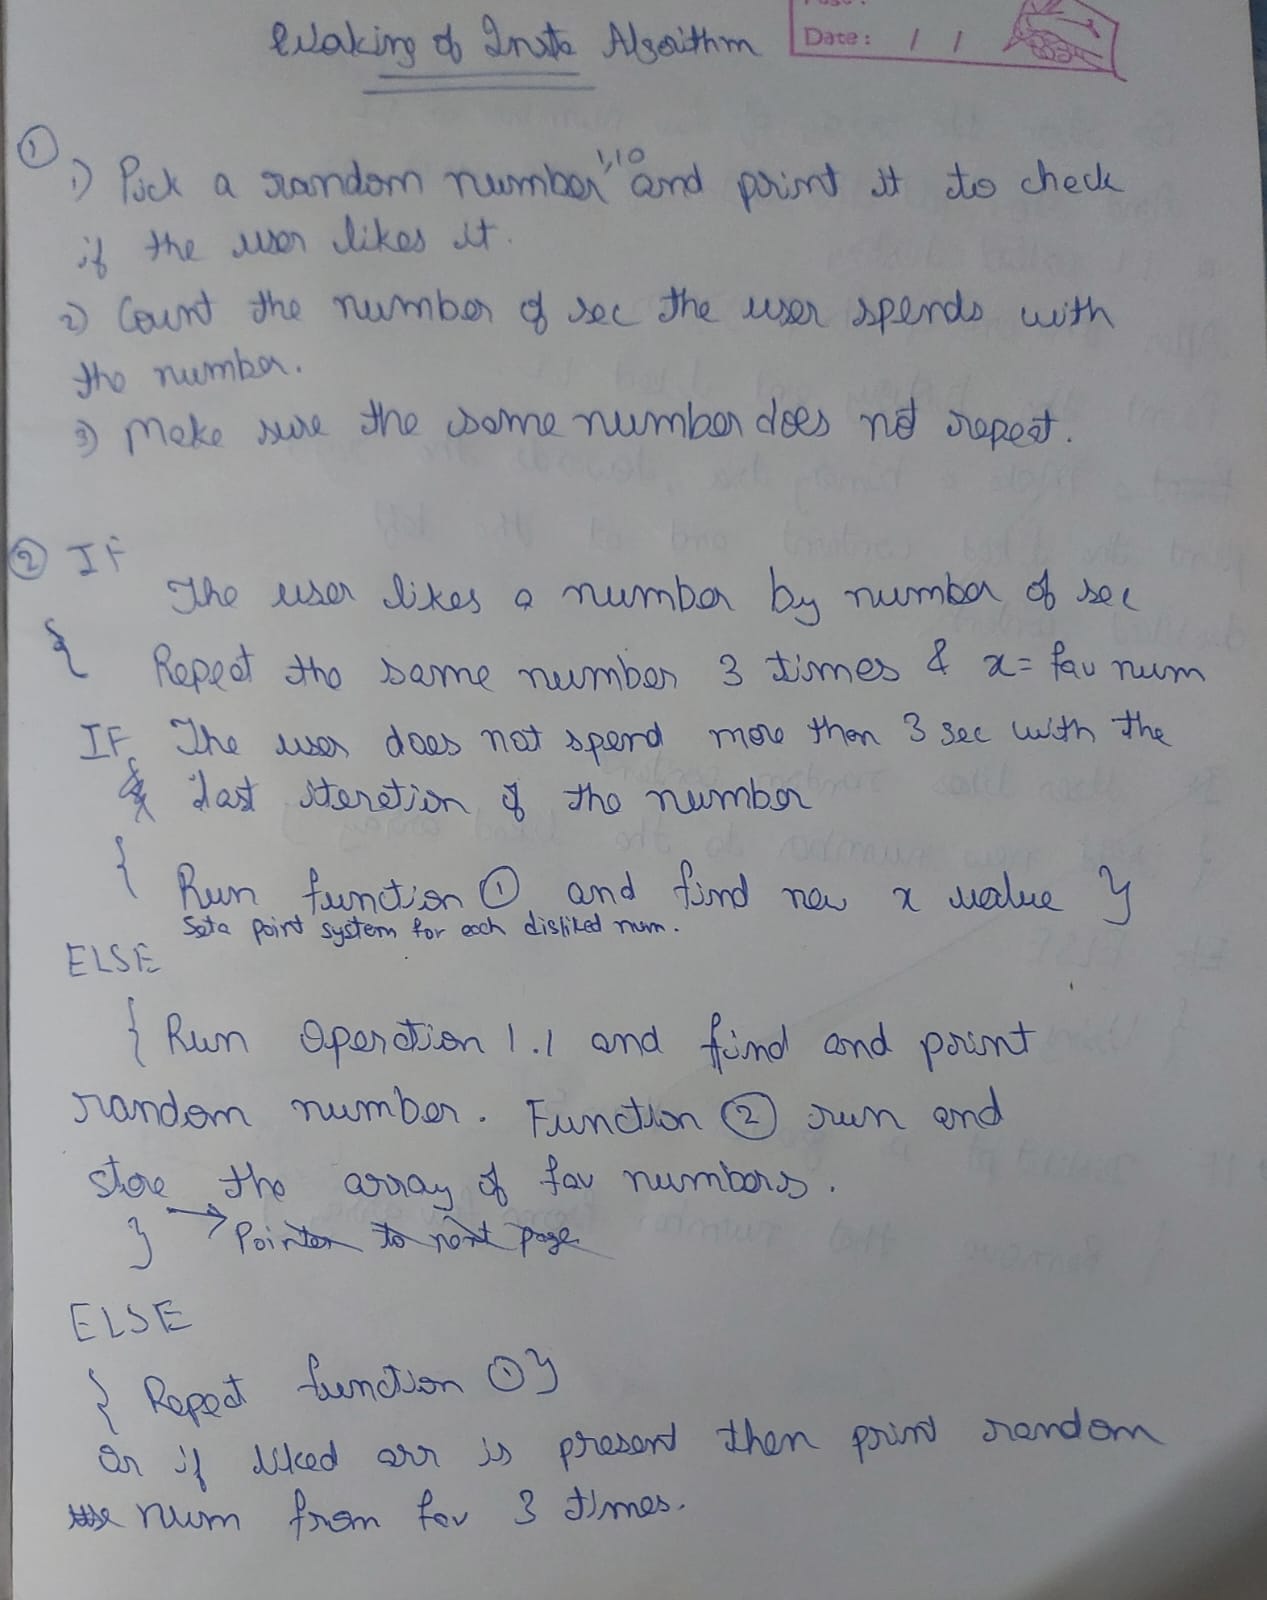 Waking of Insta Algorithm
Date: / /
①
1) Pick a random number 1,10 and print it to check
if the user likes it.
2) Count the number of sec the user spends with
the number.
3) Make sure the same number does not repeat.
② IF
The user likes a number by number of sec
{ Repeat the same number 3 times & x = fav num
IF The user does not spend more than 3 sec with the
last iteration of the number
{ Run function ① and find new x value }
Set a point system for each disliked num.
ELSE
{ Run Operation 1.1 and find and print
random number. Function ② run and
store the array of fav numbers.
} → Pointer to next page
ELSE
{ Repeat function ① }
Or if liked arr is present then print random
num from fav 3 times.